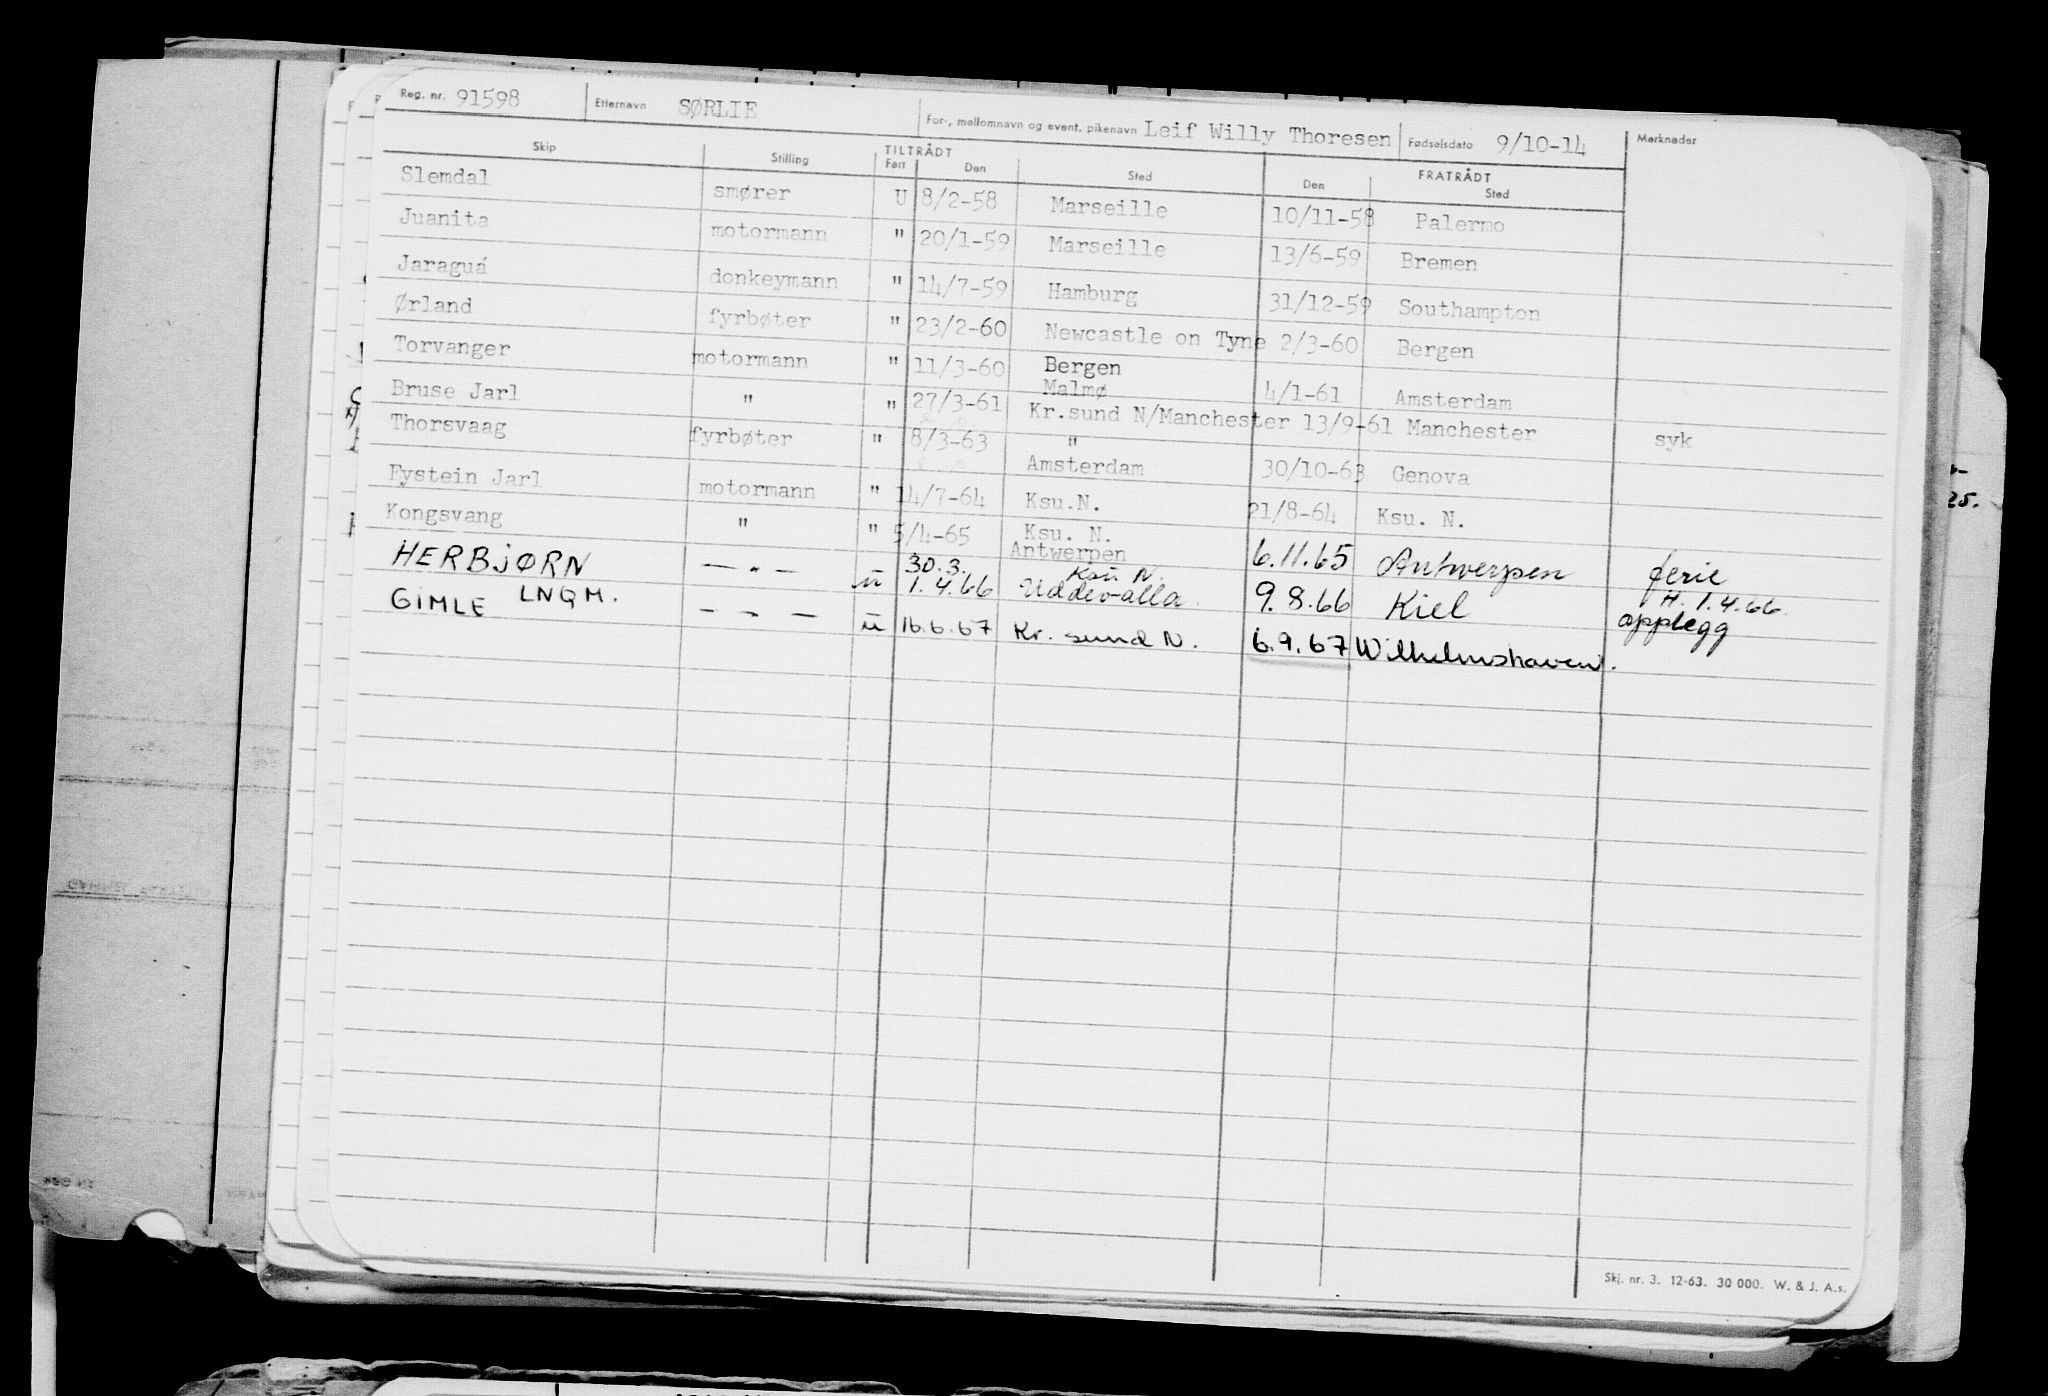 Reg. nr. 91598 Etternavn SØRLIE For-, mellomnavn og event. pikenavn Leif Willy Thoresen Fødselsdato 9/10-14 Merknader
Skip Stilling TILTRÅDT Fart Den Sted FRATRÅDT Den Sted
Slemdal smører U 8/2-58 Marseille 10/11-58 Palermo
Juanita motormann " 20/1-59 Marseille 13/6-59 Bremen
Jaraguá donkeymann " 14/7-59 Hamburg 31/12-59 Southampton
Ørland fyrbøter " 23/2-60 Newcastle on Tyne 2/3-60 Bergen
Torvanger motormann " 11/3-60 Bergen 4/1-61 Amsterdam
Malmø
Bruse Jarl " " 27/3-61 Kr.sund N/Manchester 13/9-61 Manchester syk
Thorsvaag fyrbøter " 8/3-63 "
Amsterdam 30/10-63 Genova
Eystein Jarl motormann " 14/7-64 Ksu.N. 21/8-64 Ksu. N.
Kongsvang " " 5/4-65 Ksu. N.
Antwerpen 6.11.65 Antwerpen ferie
HERBJØRN — " — 30.3. Ksu N. H. 1.4.66
LNQM. u 1.4.66 Uddevalla. 9.8.66 Kiel opplegg
GIMLE — " — u 16.6.67 Kr. sund N. 6.9.67 Wilhelmshaven.
25.
Skj. nr. 3. 12-63. 30 000. W. & J. A.s.